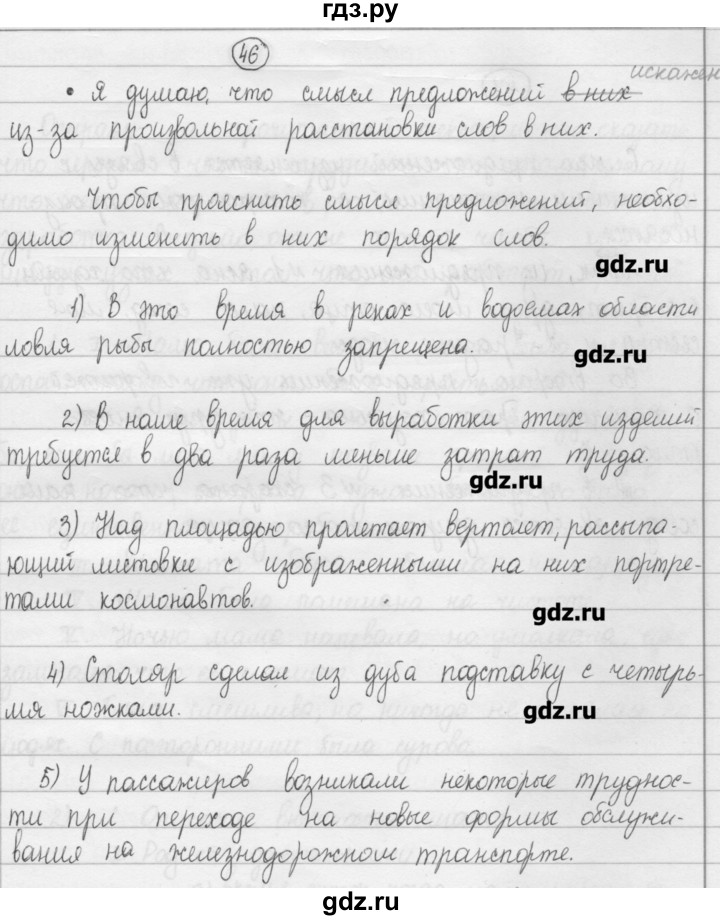 гдз.ру
46
искажен
• Я думаю, что смысл предложений в них
из-за произвольной расстановки слов в них.
Чтобы прояснить смысл предложений, необхо-
димо изменить в них порядок слов.
gdz.ru
1) В это время в реках и водоемах области
ловля рыбы полностью запрещена.
gdz.ru
2) В наше время для выработки этих изделий
требуется в два раза меньше затрат труда.
gdz.ru
3) Над площадью пролетает вертолет, рассыпа-
ющий листовки с изображенными на них портре-
тами космонавтов.
gdz.ru
4) Столяр сделал из дуба подставку с четырь-
мя ножками.
gdz.ru
5) У пассажиров возникали некоторые труднос-
ти при переходе на новые формы обслужи-
вания на железнодорожном транспорте.
gdz.ru